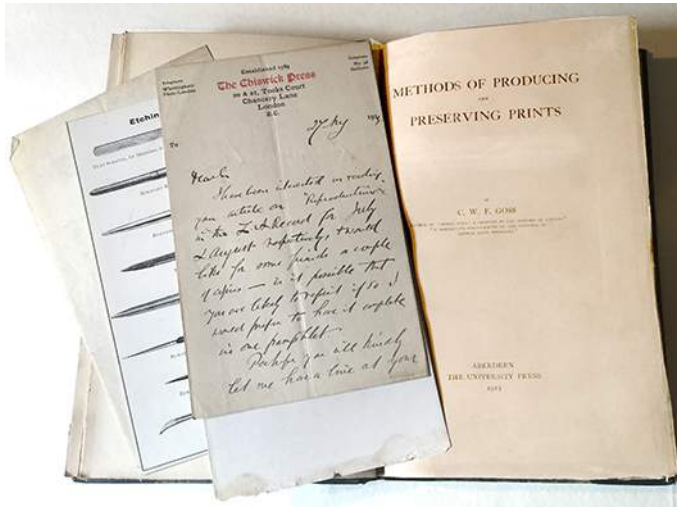 Etchin
Telegrams
Whittingham
Established 1789
The Chiswick Press
20 & 21, Tooks Court
Chancery Lane
London
E.C.
Telephone
To
27 Aug 191
Dear Sir
I have been interested in reading
your article on "Reproductions
in the L.A. Record for July
& August respectively, & would
like for some friends a couple
of copies — is it possible that
you are likely to reprint if so I
would prefer to have it complete
in one pamphlet.
Perhaps you will kindly
let me have a line at your
METHODS OF PRODUCING
AND
PRESERVING PRINTS
BY
C. W. F. GOSS
ABERDEEN
THE UNIVERSITY PRESS